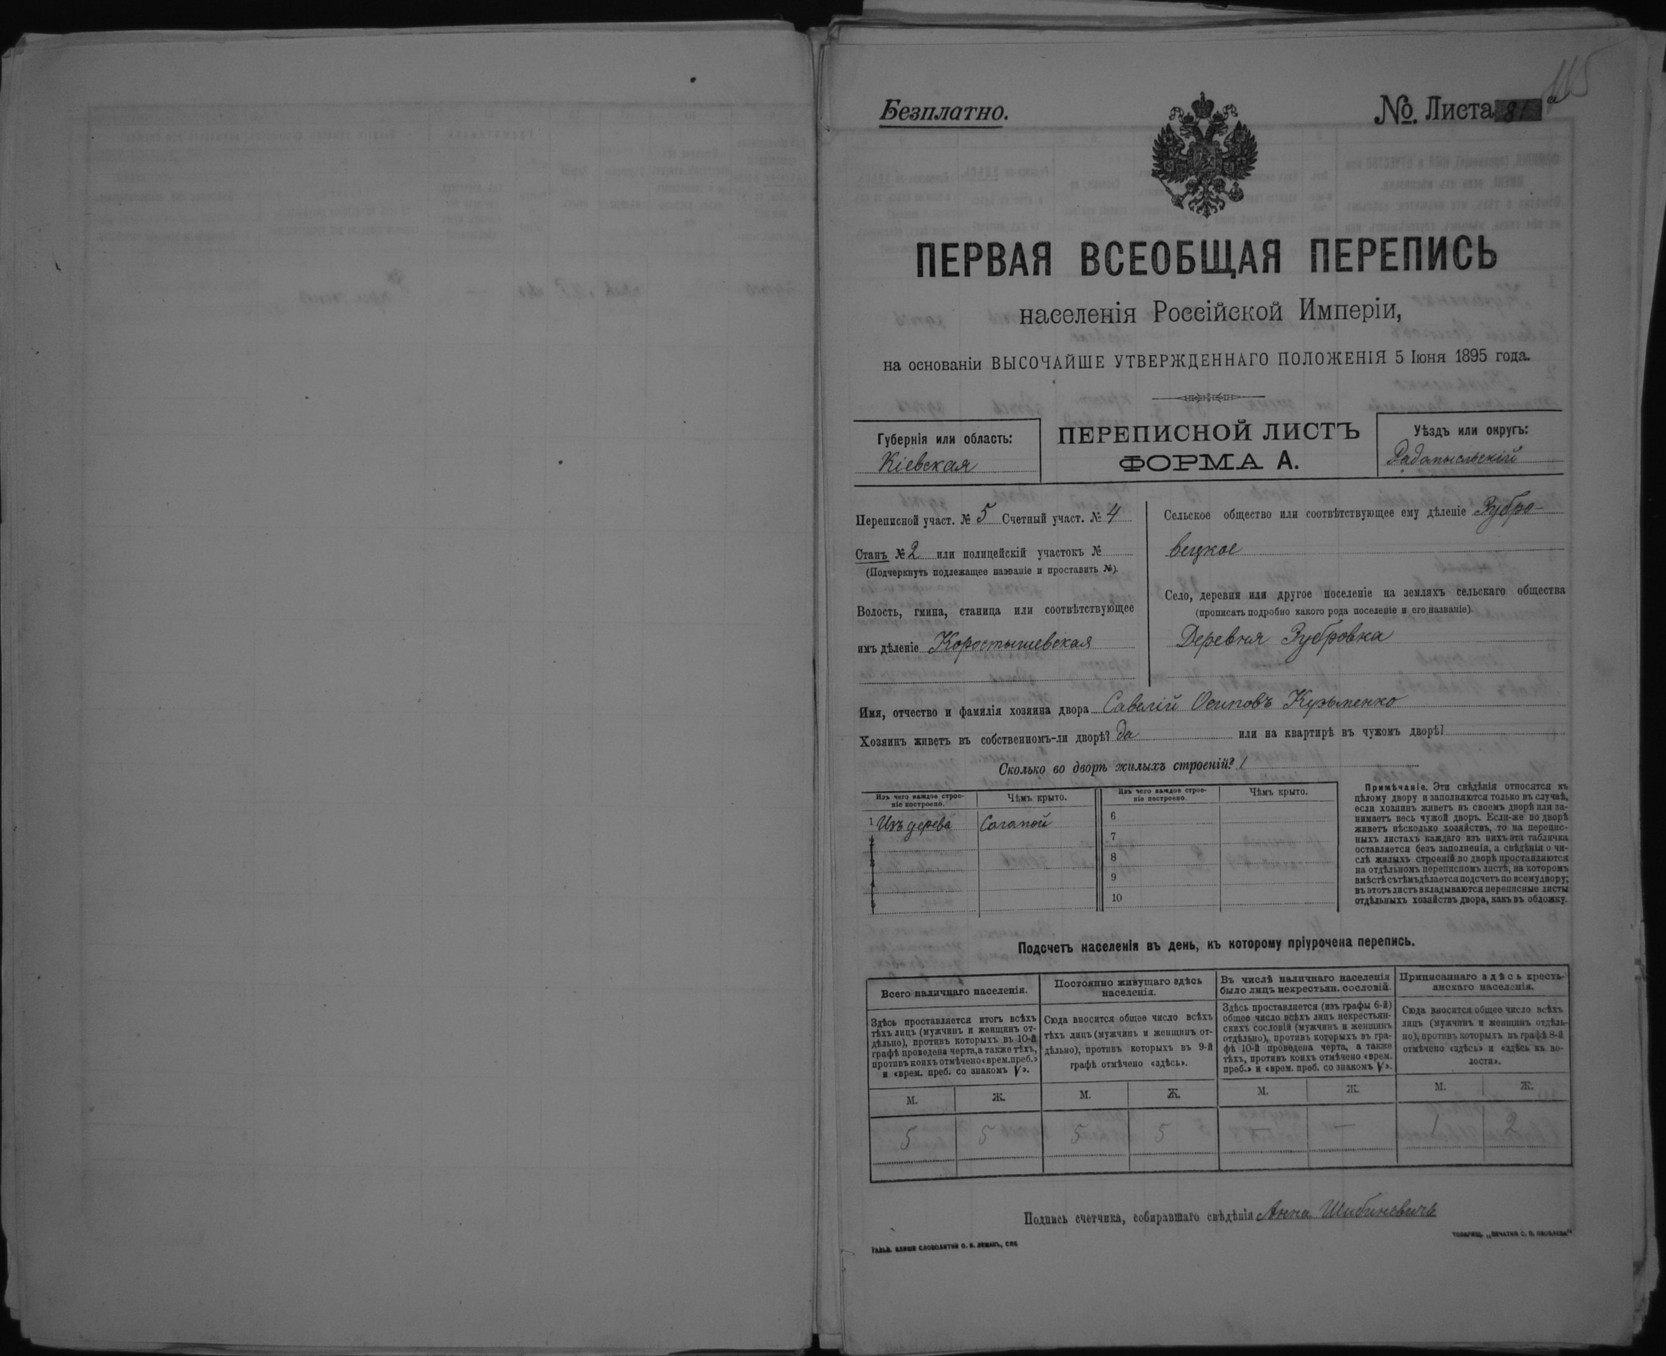 115
Безплатно.
№. Листа 81
ПЕРВАЯ ВСЕОБЩАЯ ПЕРЕПИСЬ
населенія Россійской Имперіи,
на основаніи ВЫСОЧАЙШЕ УТВЕРЖДЕННАГО ПОЛОЖЕНІЯ 5 Іюня 1895 года.
Губернія или область:
Кіевская
ПЕРЕПИСНОЙ ЛИСТЪ
ФОРМА А.
Уѣздъ или округъ:
Радомысльскій
Переписной участ. № 5 Счетный участ. № 4
Станъ № 2 или полицейскій участокъ №
(Подчеркнуть подлежащее названіе и проставить №).
Волость, гмина, станица или соотвѣтствующее
имъ дѣленіе Коростышевская
Сельское общество или соотвѣтствующее ему дѣленіе Зубро-
вецкое
Село, деревня или другое поселеніе на земляхъ сельскаго общества
(прописать подробно какого рода поселеніе и его названіе)
Деревня Зубровка
Имя, отчество и фамилія хозяина двора Савелій Осиповъ Кузьменко
Хозяинъ живетъ въ собственномъ-ли дворѣ? да или на квартирѣ въ чужомъ дворѣ?
Сколько во дворѣ жилыхъ строеній? 1
Изъ чего каждое строе-
ніе построено.
Чѣмъ крыто.
Изъ чего каждое строе-
ніе построено.
Чѣмъ крыто.
1 Изъ дерева Соломой
6
7
8
9
10
Примѣчаніе. Эти свѣдѣнія относятся къ
цѣлому двору и заполняются только въ случаѣ,
если хозяинъ живетъ въ своемъ дворѣ или за-
нимаетъ весь чужой дворъ. Если-же во дворѣ
живетъ нѣсколько хозяйствъ, то на перепис-
ныхъ листахъ каждаго изъ нихъ эта табличка
оставляется безъ заполненія, а свѣдѣнія о чи-
слѣ жилыхъ строеній во дворѣ проставляются
на отдѣльномъ переписномъ листѣ, на которомъ
вмѣстѣ съ тѣмъ дѣлается подсчетъ по всему двору;
въ этотъ листъ вкладываются переписные листы
отдѣльныхъ хозяйствъ двора, какъ въ обложку.
Подсчетъ населенія въ день, къ которому пріурочена перепись.
Всего наличнаго населенія.
Постоянно живущаго здѣсь
населенія.
Въ числѣ наличнаго населенія
было лицъ некрестьян. сословій.
Приписаннаго здѣсь кресть-
янскаго населенія.
Здѣсь проставляется итогъ всѣхъ
тѣхъ лицъ (мужчинъ и женщинъ от-
дѣльно), противъ которыхъ въ 10-й
графѣ проведена черта, а также тѣхъ,
противъ коихъ отмѣчено «врем. преб.»
и «врем. преб. со знакомъ V».
Сюда вносится общее число всѣхъ
тѣхъ лицъ (мужчинъ и женщинъ от-
дѣльно), противъ которыхъ въ 9-й
графѣ отмѣчено «здѣсь».
Здѣсь проставляется (изъ графы 6-й)
общее число всѣхъ лицъ некрестьян-
скихъ сословій (мужчинъ и женщинъ
отдѣльно), противъ которыхъ въ гра-
фѣ 10-й проведена черта, а также
тѣхъ, противъ коихъ отмѣчено «врем.
преб.» и «врем. преб. со знакомъ V».
Сюда вносится общее число всѣхъ
лицъ (мужчинъ и женщинъ отдѣль-
но), противъ которыхъ въ графѣ 8-й
отмѣчено «здѣсь» и «здѣсь въ во-
лости».
М. Ж. М. Ж. М. Ж. М. Ж.
5 5 5 5 — — 1 2
Подпись счетчика, собиравшаго свѣдѣнія Анна Шибиневичъ
ГАЛЬВ. КЛИШЕ СЛОВОЛИТНИ О. И. ЛЕМАНЪ, СПБ.
ТОВАРИЩ. „ПЕЧАТНЯ С. П. ЯКОВЛЕВА“.